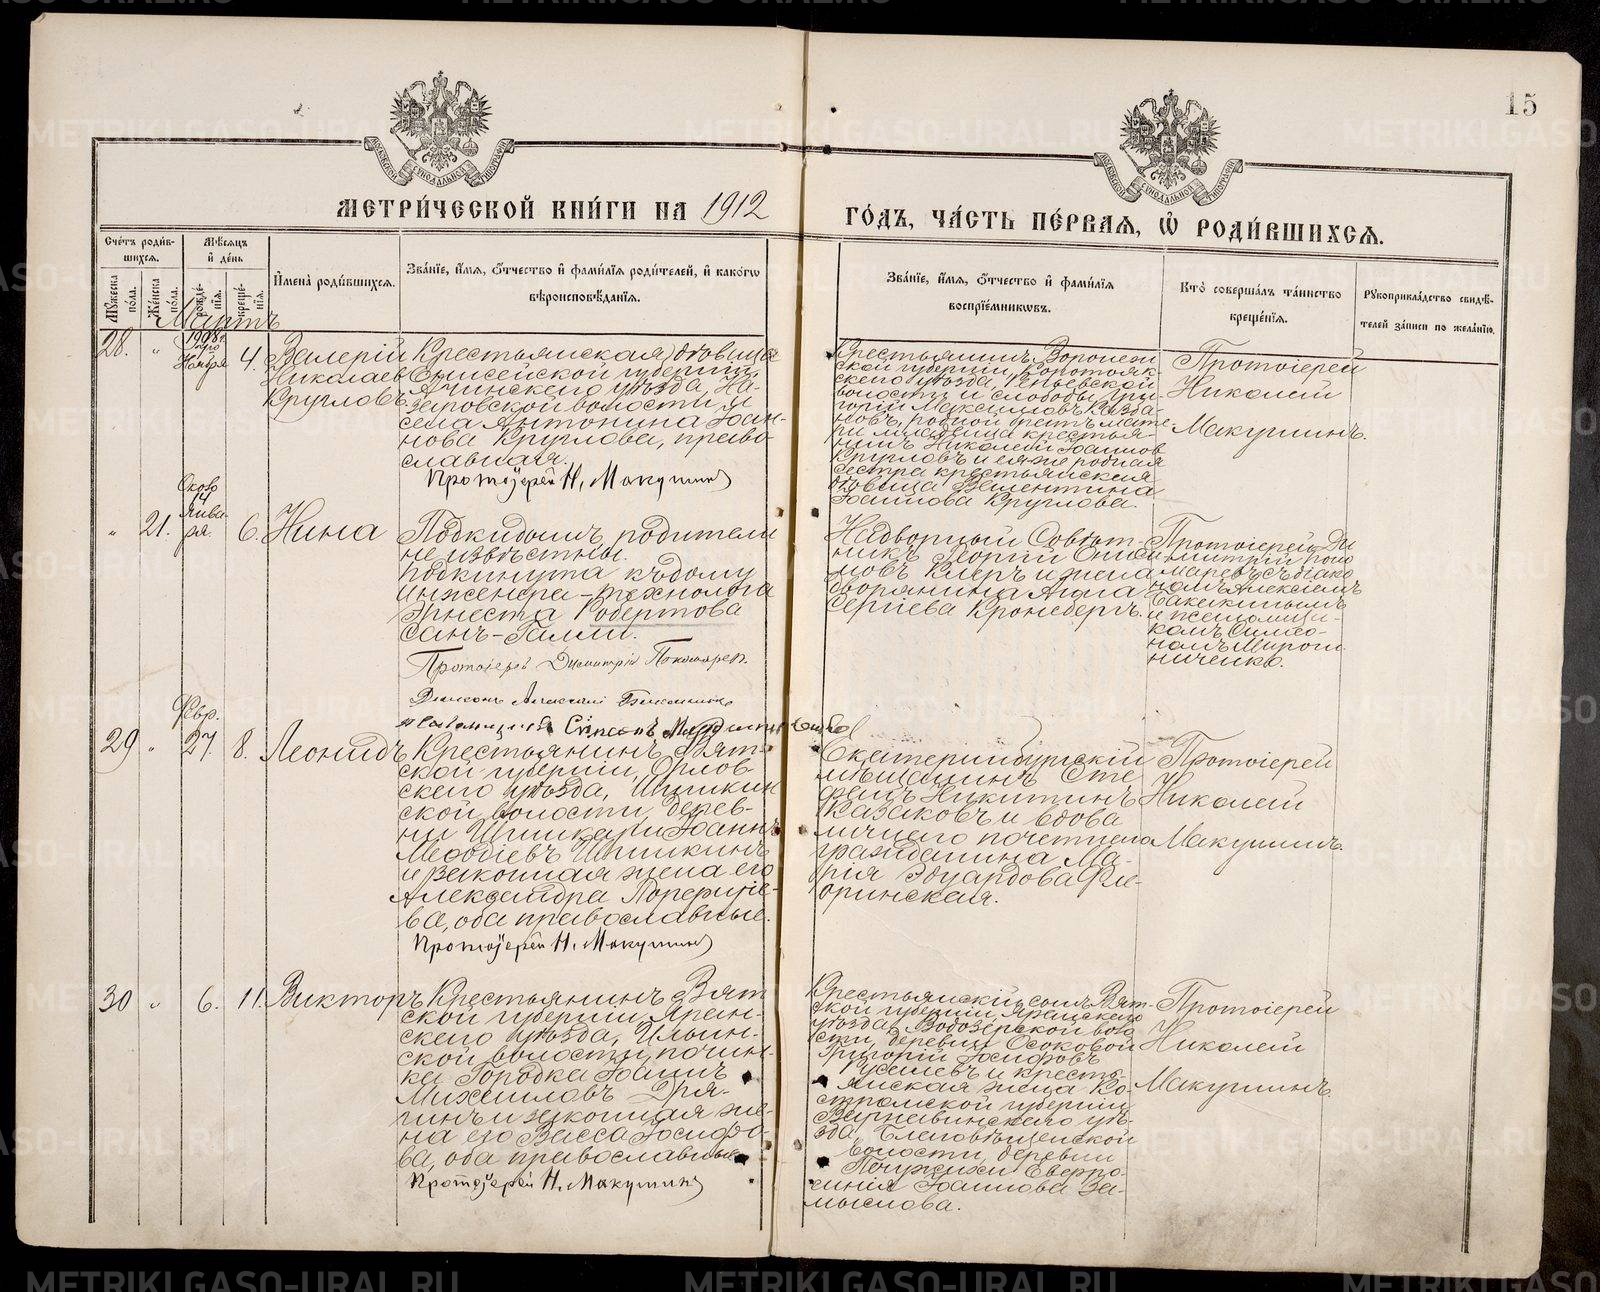 15
МЕТРИ́ЧЕСКОЙ КНИ́ГИ НА 1912
ГО́ДЪ, ЧА́СТЬ ПЕ́РВАЯ, Ѡ҆ РОДИ́ВШИХСЯ.
Сче́тъ роди́в-
шихся.
Мꙋ́жеска по́ла.
Же́нска по́ла.
Мѣ́сяцъ и҆ де́нь
рожде́-
нїя.
креще́-
нїя.
И҆мена̀ роди́вшихся.
Зва́нїе, и҆́мя, ѻ҆́тчество и҆ фами́лїя роди́телей, и҆ како́гѡ
вѣроисповѣ́данїя.
Зва́нїе, и҆́мя, ѻ҆́тчество и҆ фами́лїя
воспрїе́мникѡвъ.
Кто̀ соверша́лъ та́инство
креще́нїя.
Рꙋкоприкла́дство свидѣ́-
телей за́писи по жела́нїю.
Мартъ
28.
"
1908 г.
Ноября
4.
Валерій
Николаев
Кругловъ
Крестьянская дѣвица
Енисейской губерніи,
Ачинскаго уѣзда, На-
заровской волости и
села Антонина Іоан-
нова Круглова, право-
славная.
Протоіерей Н. Макушинъ
Крестьянинъ Воронеж-
ской губерніи, Коротояк-
скаго уѣзда, Репьевской
волости и слободы, Гри-
горій Максимовъ
родной братъ мате-
ри младенца крестья-
нинъ Николай Іоаннов
Кругловъ и ея же родная
сестра крестьянская
дѣвица Валентина
Іоаннова Круглова.
Протоіерей
Николай
Макушинъ.
"
21.
Около
14
Янва-
ря.
6.
Нина
Подкидышъ, родители
не извѣстны.
Подкинута къ дому
инженера-технолога
Эрнеста Робертова
Санъ-Галли.
Протоіерей Димитрій Пономарев.
Діаконъ Алексій
Надворный Совѣт-
никъ Георгій Онисі-
мовъ Клеръ и жена
дворянина Анна
Сергіева Кронебергъ.
Протоіерей Ди-
митрій Поно-
маревъ съ діако-
номъ Алексіемъ
и псаломщи-
комъ Симео-
номъ Мирош-
ниченко.
29
"
Февр.
27.
8.
Леонидъ
Крестьянинъ Вят-
ской губерніи, Орлов-
скаго уѣзда, Шишкин-
ской волости, дерев-
ни Шишкари Іоаннъ
Меѳодіевъ Шишкинъ
и законная жена его
Александра Порфиріе-
ва, оба православные.
Протоіерей Н. Макушинъ
Екатеринбургскій
мѣщанинъ Сте-
фанъ Никитинъ
Казаковъ и вдова
личнаго почетнаго
гражданина Ма-
рія Эдуардова Фле-
оринская.
Протоіерей
Николай
Макушинъ.
30
"
6.
11.
Викторъ
Крестьянинъ Вят-
ской губерніи, Яран-
скаго уѣзда, Ильин-
ской волости, починка
ка Городка Іоаннъ
Михаиловъ Дря-
гинъ и законная же-
на его Васса Іосифо-
ва, оба православные.
Протоіерей Н. Макушинъ
Крестьянскій сынъ Вят-
ской губерніи, Яранскаго
уѣзда, Водозерской воло-
сти, деревни Осоковой
Григорій Іосифовъ
и кресть-
янская жена Ко-
стромской губерніи,
Варнавинскаго уѣ-
зда, Благовѣщенской
волости, деревни
Евфро-
синія Іоаннова За-
мыслова.
Протоіерей
Николай
Макушинъ.
METRIKI.GASO-URAL.RU